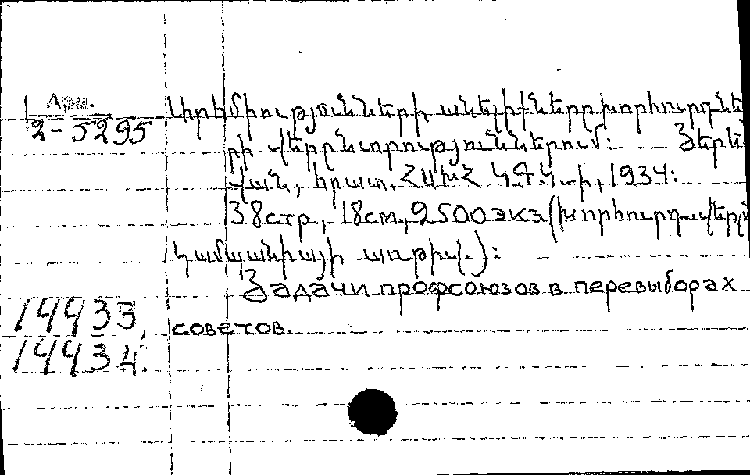 Арм.
2-5295
Արհմիությունների անելիքները խորհուրդնե
րի վերընտրություններում: Յերե
վան, հրատ. ՀԱԽՀ ԿԳԿ-ի, 1934:
38 стр., 18 см., 2500 экз. (խորհուրդ. վերընտ
կամպանիայի առթիվ.):
Задачи профсоюзов в перевыборах
советов.
14433,
14434.